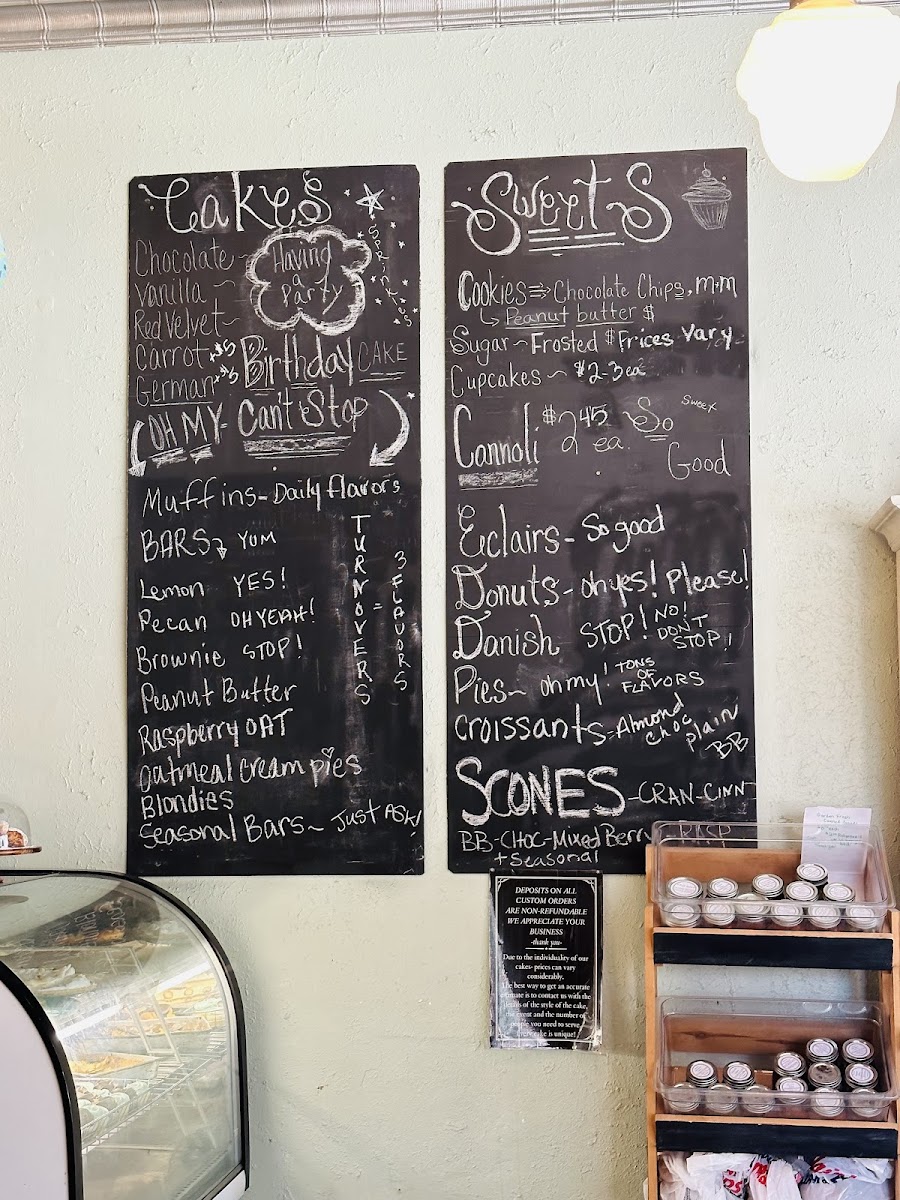 Cakes
Chocolate ~
Vanilla ~
Red Velvet ~
Carrot +$5
German +$5
Having
a
party
SPRINKLES
Birthday CAKE
OH MY - Can't Stop
Muffins - Daily flavors
BARS YUM
Lemon YES!
Pecan OH YEAH!
Brownie STOP!
Peanut Butter
Raspberry OAT
oatmeal cream pies
Blondies
Seasonal Bars ~ Just ASK!
TURNOVERS =
3 FLAVORS
Sweets
Cookies => Chocolate Chips, m+m
Peanut butter $
Sugar ~ Frosted $ Prices Vary
Cupcakes ~ $2-3 ea
Cannoli $2.45 ea. So Good
Sweet
Eclairs - So good
Donuts - oh yes! Please!
Danish STOP! NO! DON'T STOP!!
Pies ~ oh my! TONS OF FLAVORS
croissants - Almond
choc plain
BB
SCONES - CRAN - CINN
BB - CHOC - Mixed Berry - RASP
+ Seasonal
DEPOSITS ON ALL
CUSTOM ORDERS
ARE NON-REFUNDABLE
WE APPRECIATE YOUR
BUSINESS
-thank you-
Due to the individuality of our
cakes- prices can vary
considerably.
The best way to get an accurate
estimate is to contact us with the
details of the style of the cake,
the event and the number of
people you need to serve.
Every cake is unique!